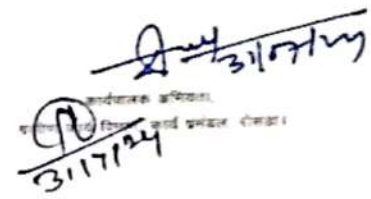 31/07/24
कार्यपालक अभियंता,
ग्रामीण कार्य विभाग, कार्य प्रमंडल रोसड़ा।
31/7/24